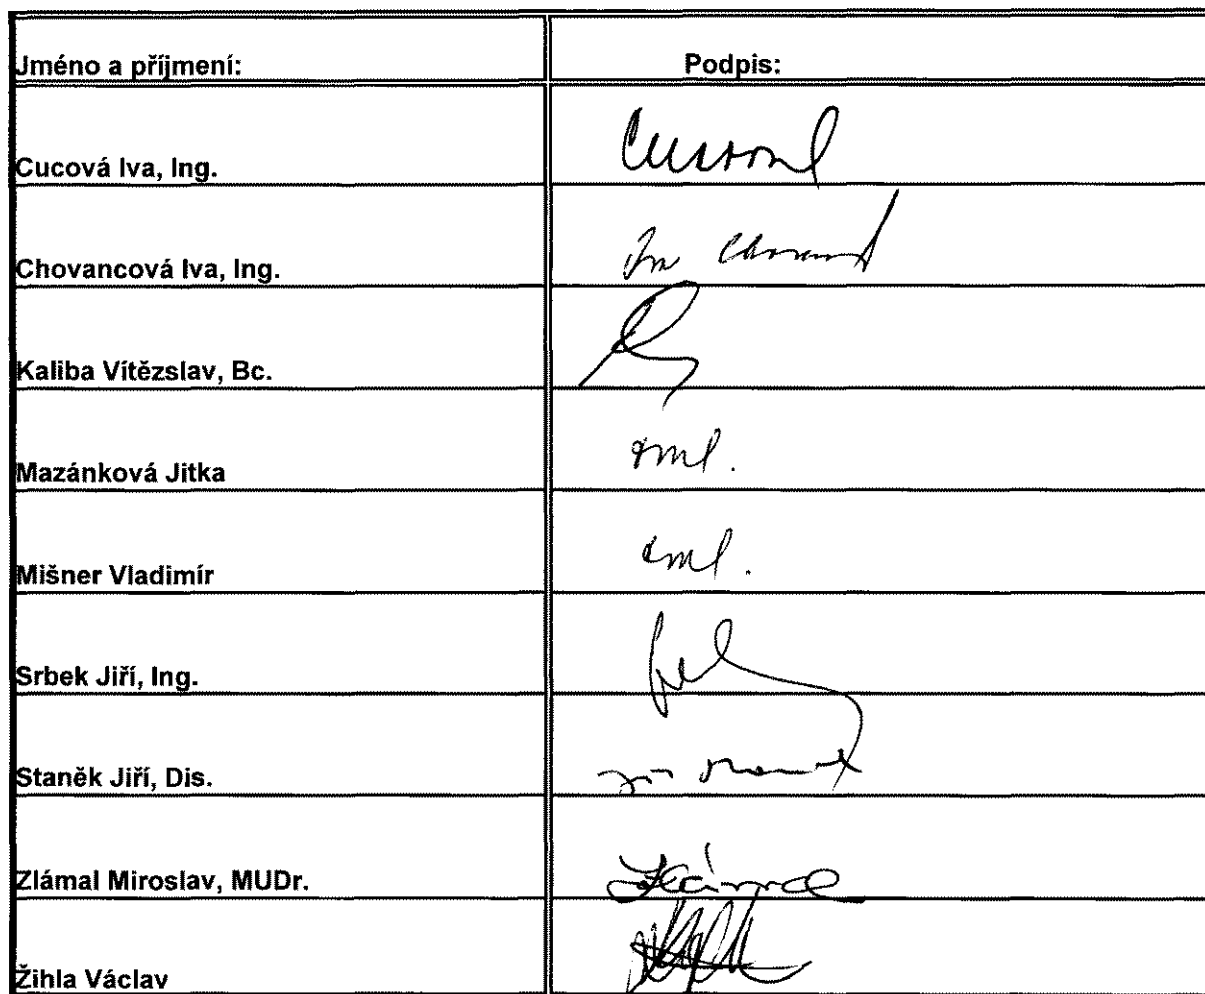 Jméno a příjmení: Podpis:
Cucová Iva, Ing.
Chovancová Iva, Ing.
Kaliba Vítězslav, Bc.
Mazánková Jitka oml.
Mišner Vladimír oml.
Srbek Jiří, Ing.
Staněk Jiří, Dis.
Zlámal Miroslav, MUDr.
Žihla Václav